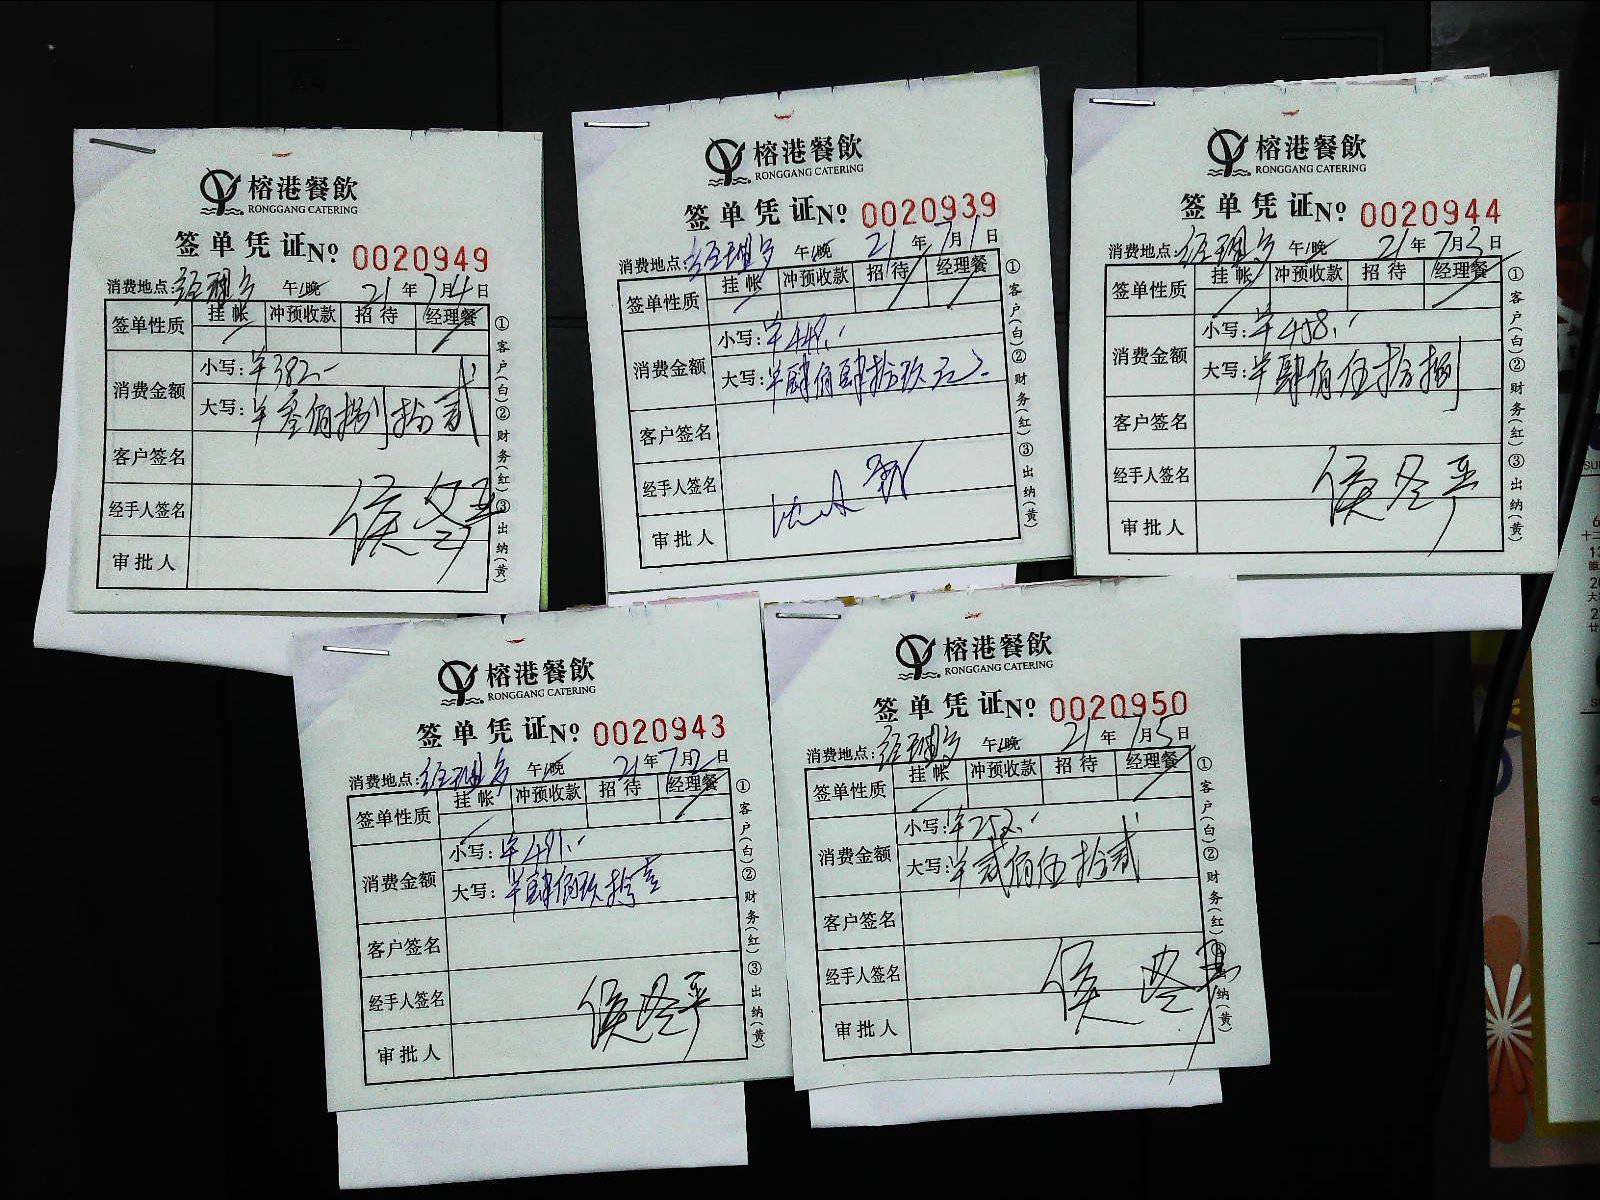 榕港餐飲
RONGGANG CATERING
签单凭证 No 0020949
消费地点: 午/晚 21年7月4日
签单性质 挂帐 冲预收款 招待 经理餐
消费金额
小写: ¥382.-
大写: 半叁佰捌拾贰
客户签名
经手人签名
审批人
①客户(白)②财务(红)③出纳(黄)
榕港餐飲
RONGGANG CATERING
签单凭证 No 0020939
消费地点: 午/晚 21年7月1日
签单性质 挂帐 冲预收款 招待 经理餐
消费金额
小写: ¥449.-
大写: 半肆佰肆拾玖元
客户签名
经手人签名
审批人
①客户(白)②财务(红)③出纳(黄)
榕港餐飲
RONGGANG CATERING
签单凭证 No 0020944
消费地点: 午/晚 21年7月3日
签单性质 挂帐 冲预收款 招待 经理餐
消费金额
小写: ¥458.-
大写: 半肆佰伍拾捌
客户签名
经手人签名
审批人
①客户(白)②财务(红)③出纳(黄)
榕港餐飲
RONGGANG CATERING
签单凭证 No 0020943
消费地点: 午/晚 21年7月2日
签单性质 挂帐 冲预收款 招待 经理餐
消费金额
小写: ¥491.-
大写: 半肆佰玖拾壹
客户签名
经手人签名
审批人
①客户(白)②财务(红)③出纳(黄)
榕港餐飲
RONGGANG CATERING
签单凭证 No 0020950
消费地点: 午/晚 21年7月5日
签单性质 挂帐 冲预收款 招待 经理餐
消费金额
小写: ¥252.-
大写: 半贰佰伍拾贰
客户签名
经手人签名
审批人
①客户(白)②财务(红)③出纳(黄)